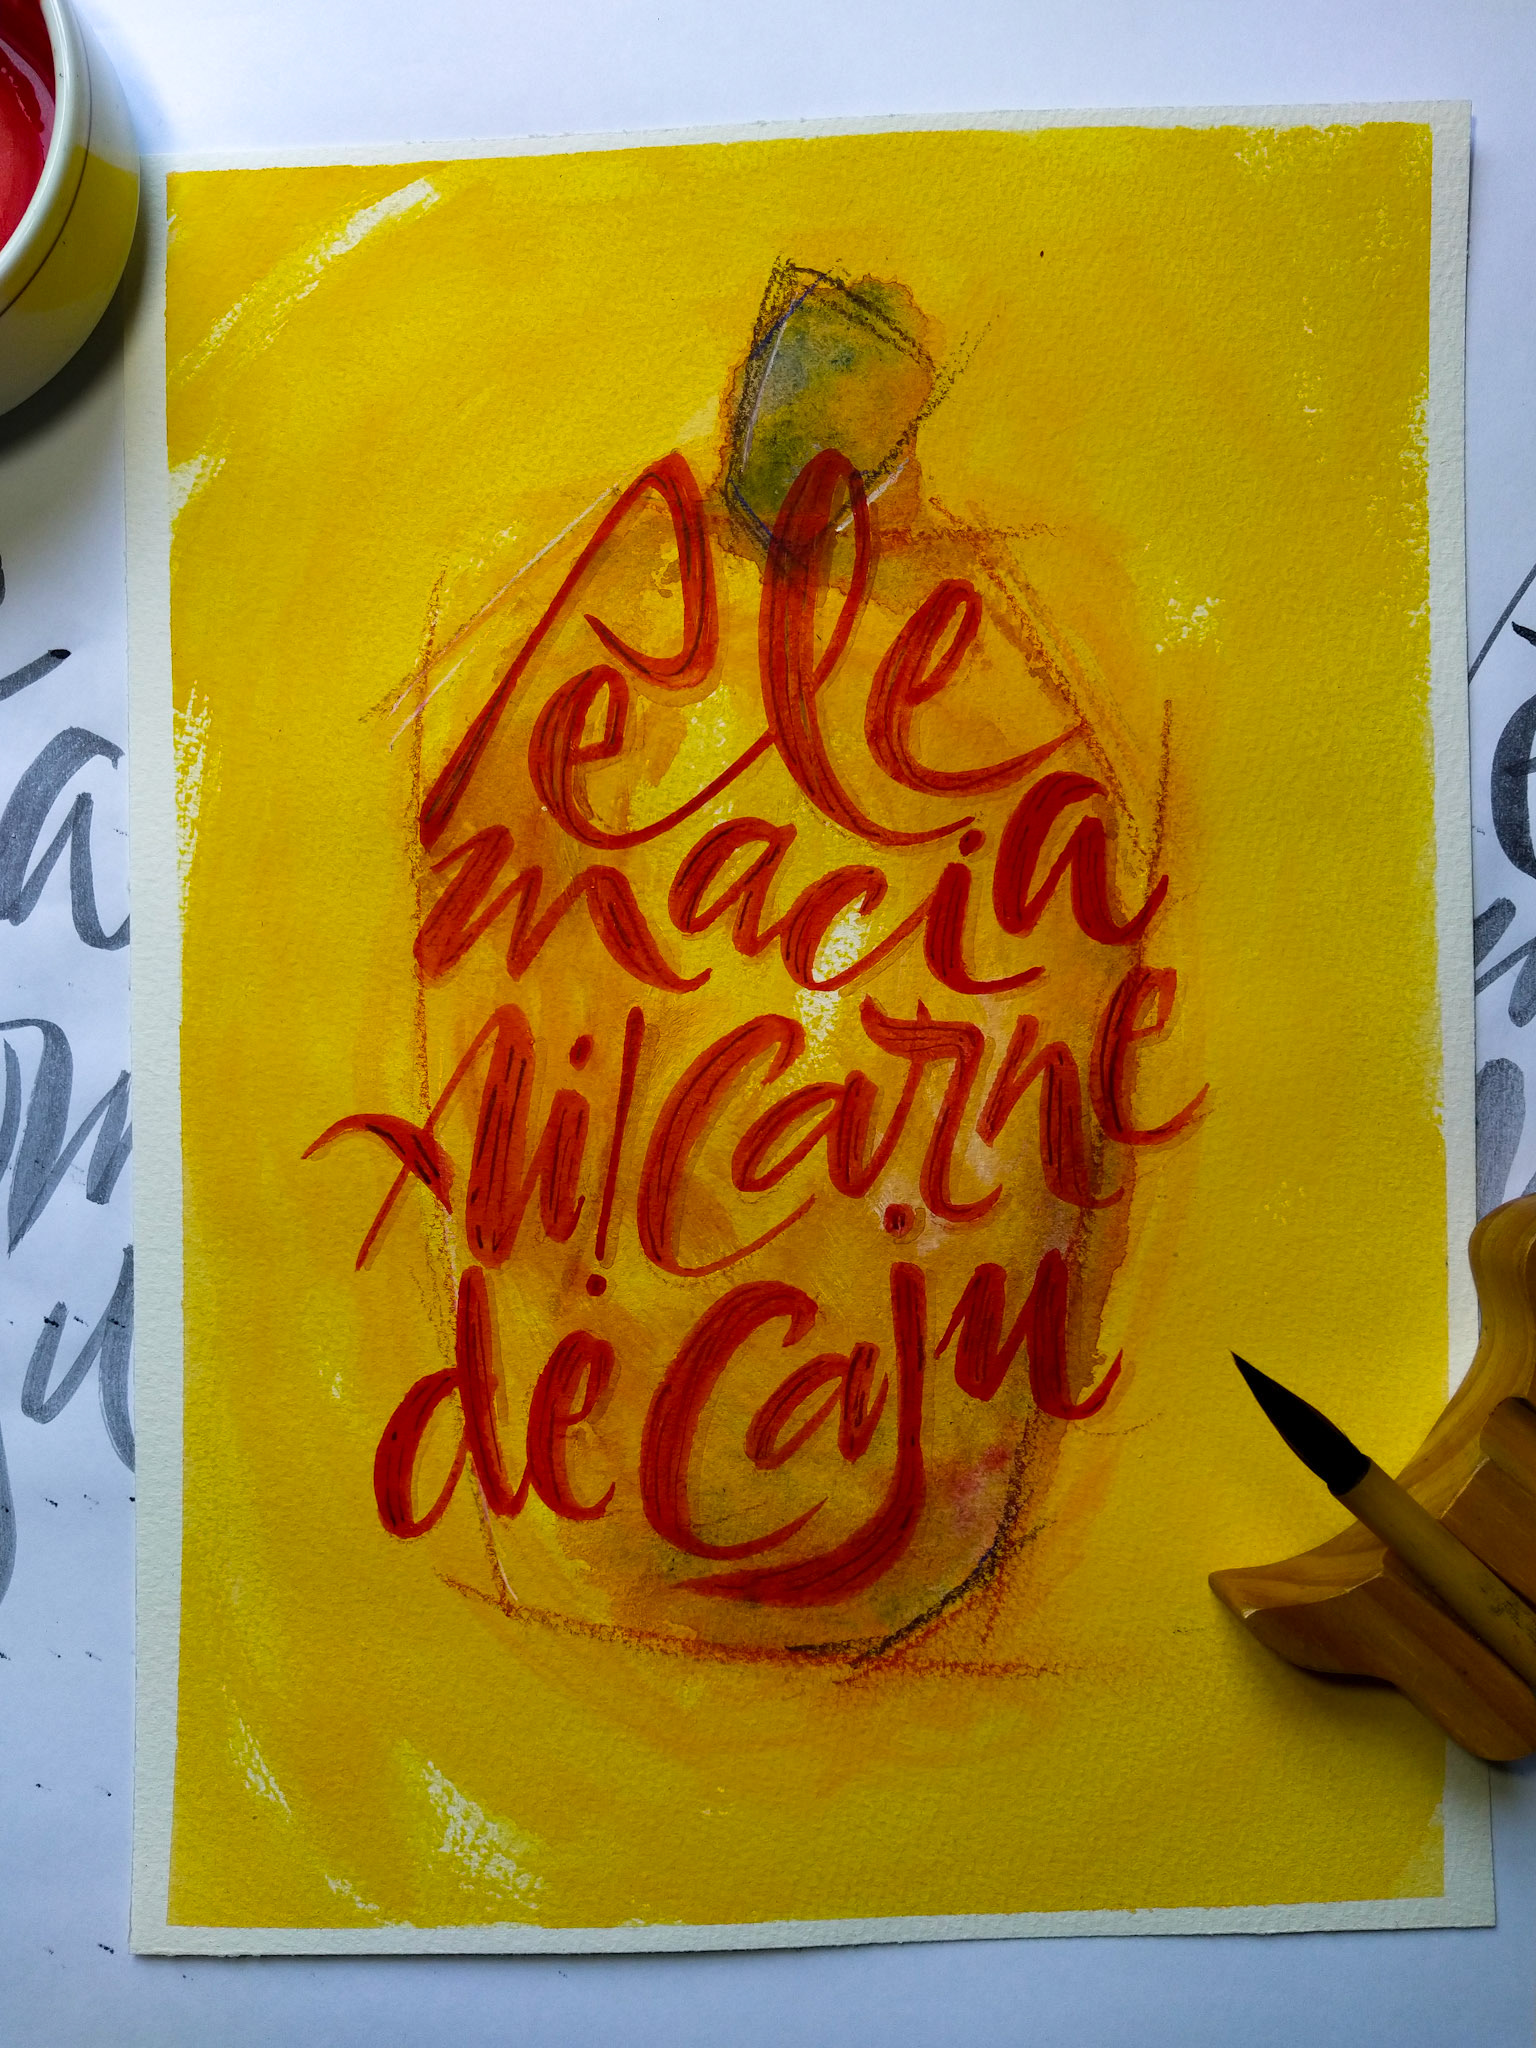 Pele
macia
Ai! Carne
de Caju